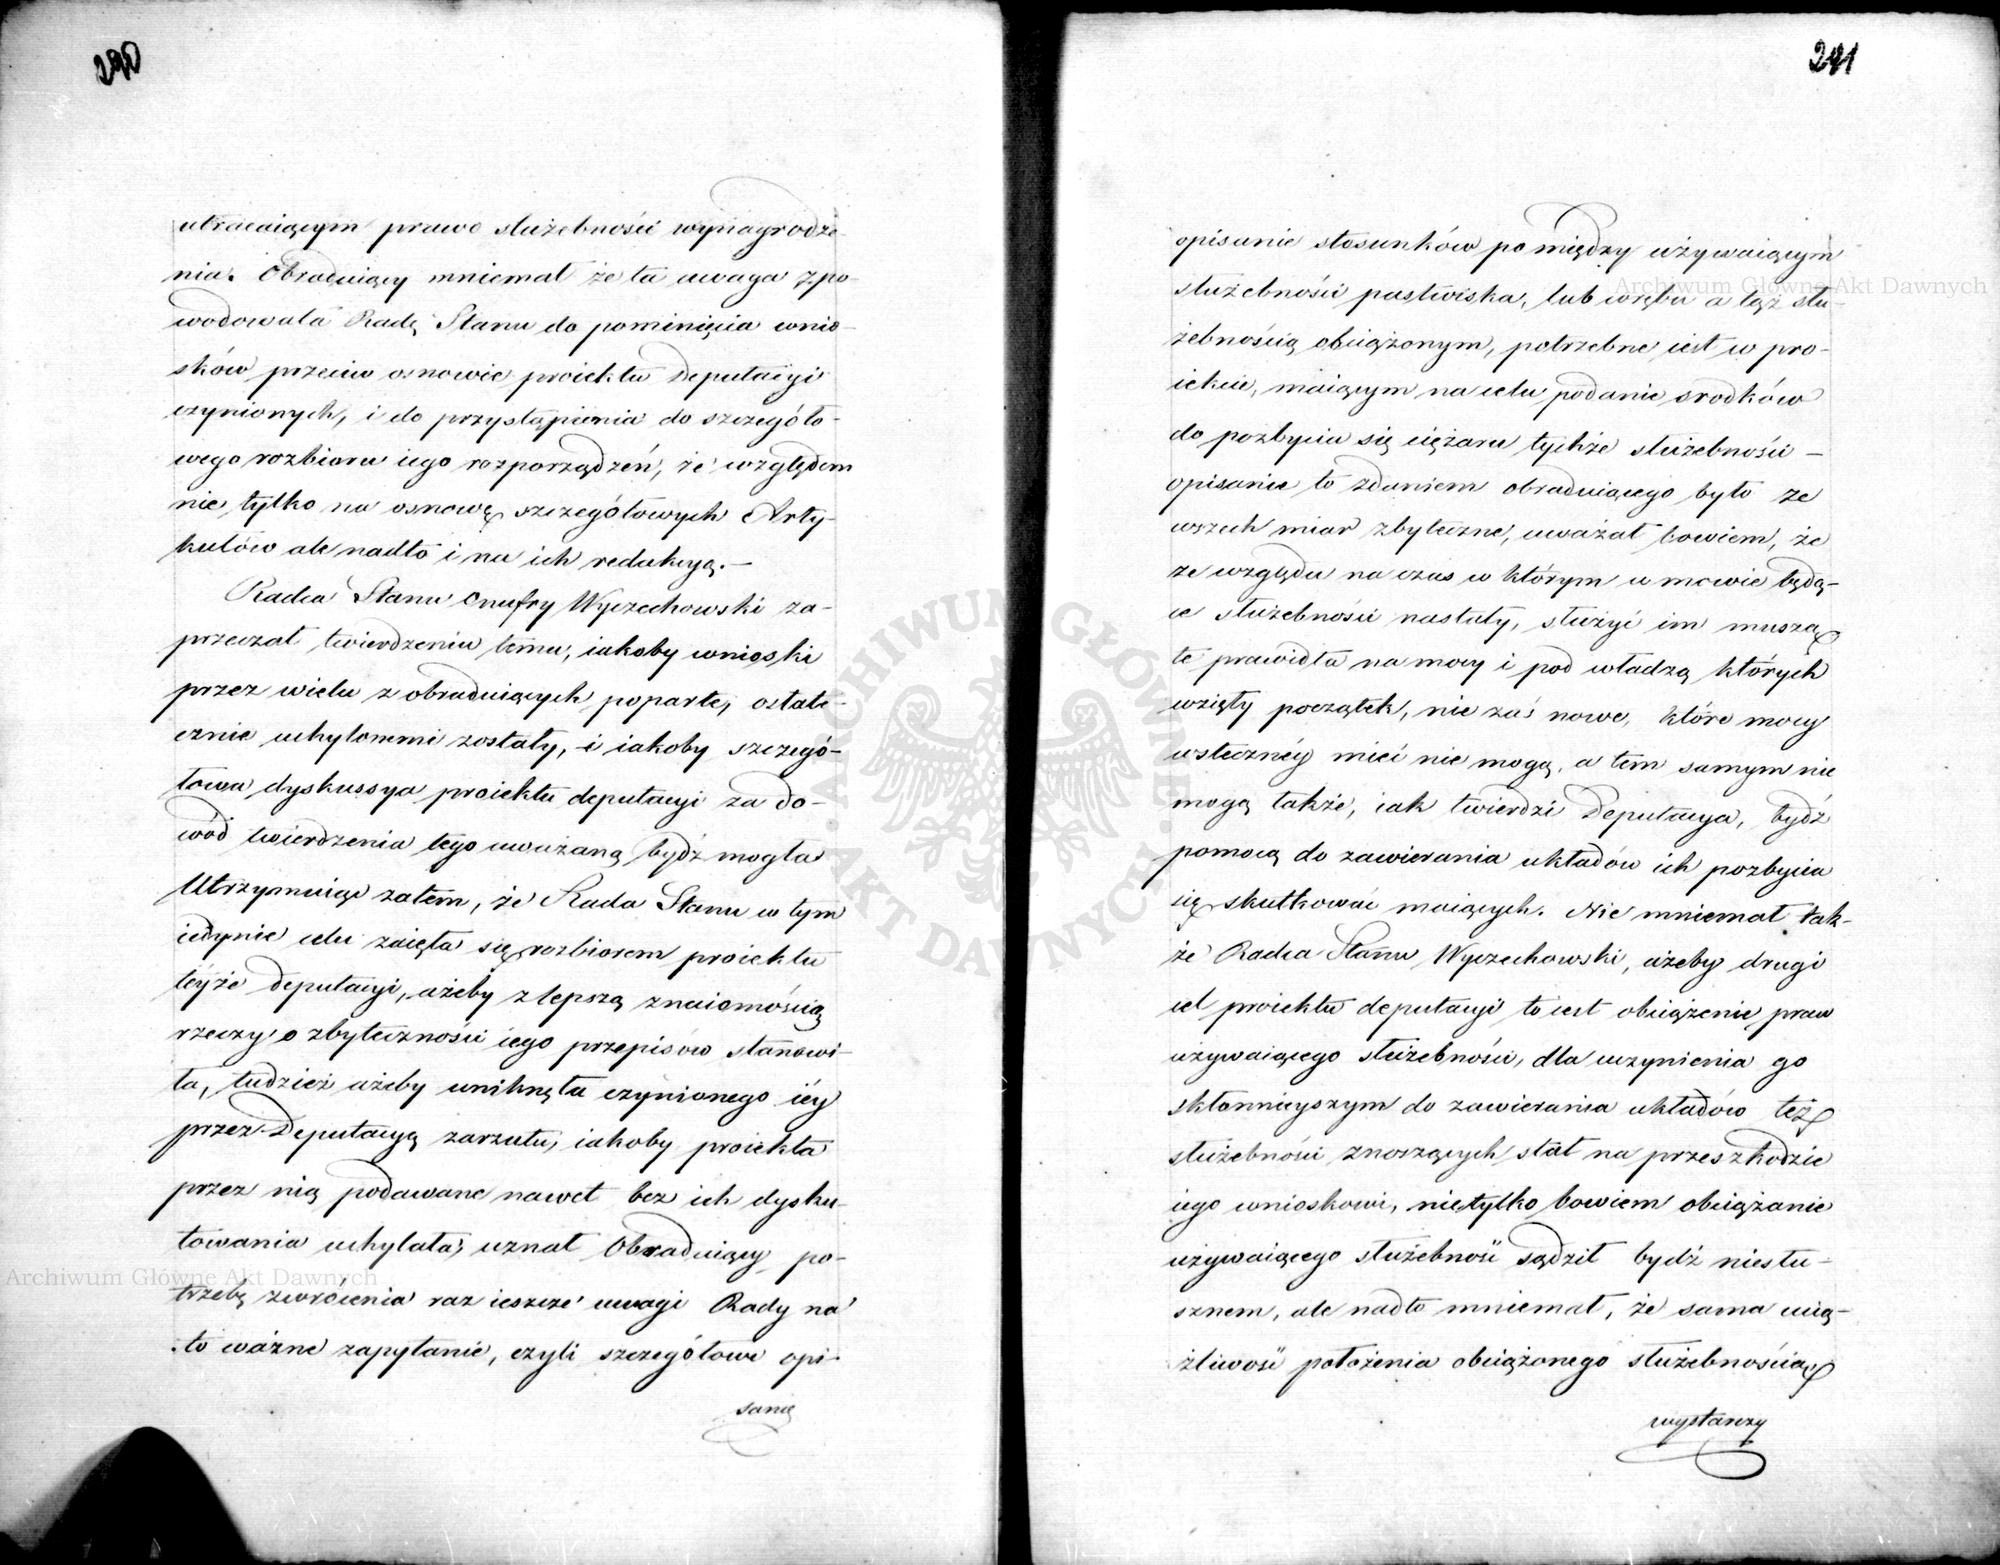 290
utracaiącym prawo służebności wynagrodze-
nia. Obraduiący mniemał że ta uwaga zpo-
wodowała Radę Stanu do pominięcia wnio-
sków przeciw osnowie proiektu Deputacyi
czynionych, i do przystąpienia do szczegóło-
wego rozbioru iego rozporządzeń, ze względem
nie tylko na osnowę szczegółowych Arty-
kułów ale nadto i na ich redakcyą. —
Radca Stanu Onufry Wyczechowski za-
przeczał twierdzeniu temu, iakoby wnioski
przez wielu z obraduiących poparte, ostate-
cznie uchylonemi zostały, i iakoby szczegó-
łowa dyskussya proiektu deputacyi za do-
wód twierdzenia tego uważaną bydź mogła
Utrzymuiąc zatem, że Rada Stanu w tym
iedynie celu zaięła się rozbiorem proiektu
teyże deputacyi, ażeby z lepszą znaiomością
rzeczy o zbyteczności iego przepisów stanowi-
ła, tudzież ażeby uniknęła czynionego iéy
przez Deputacyą zarzutu, iakoby proiekta
przez nią podawane nawet bez ich dysku-
towania uchylała, uznał Obraduiący po-
trzebę zwrócenia raz ieszcze uwagi Rady na
to ważne zapytanie, czyli szczegółowe opi-
sanie
241
opisanie stosunków pomiędzy używaiącym
służebności pastwiska, lub wrębu a tąż słu-
żebnością obciążonym, potrzebne iest w pro-
iekcie, maiącym na celu podanie srodków
do pozbycia się ciężaru tychże służebności —
opisanie to zdaniem obraduiącego było ze
wszech miar zbyteczne, uważał bowiem, że
ze względu na czas w którym w mowie będą-
ce służebności nastały, służyć im muszą
te prawidła na mocy i pod władzą których
wzięły początek, nie zaś nowe, które mocy
wstecznéy mieć nie mogą, a tem samym nie
mogą także, iak twierdzi Deputacya, bydź
pomocą do zawierania układów ich pozbycia
się skutkować maiących. Nie mniemał tak-
że Radca Stanu Wyczechowski, ażeby drugi
cel proiektu deputacyi to iest obciążenie praw
używaiącego służebności, dla uczynienia go
skłonnieyszym do zawierania układów też
służebności znoszących stał na przeszkodzie
iego wnioskowi, nietylko bowiem obciążanie
używaiącego służebność sądził bydź niesłu-
sznem, ale nadto mniemał, że sama ucią-
żliwość położenia obciążonego służebnością
wystarczy
Archiwum Główne Akt Dawnych
Archiwum Główne Akt Dawnych
· ARCHIWUM GŁÓWNE · AKT DAWNYCH